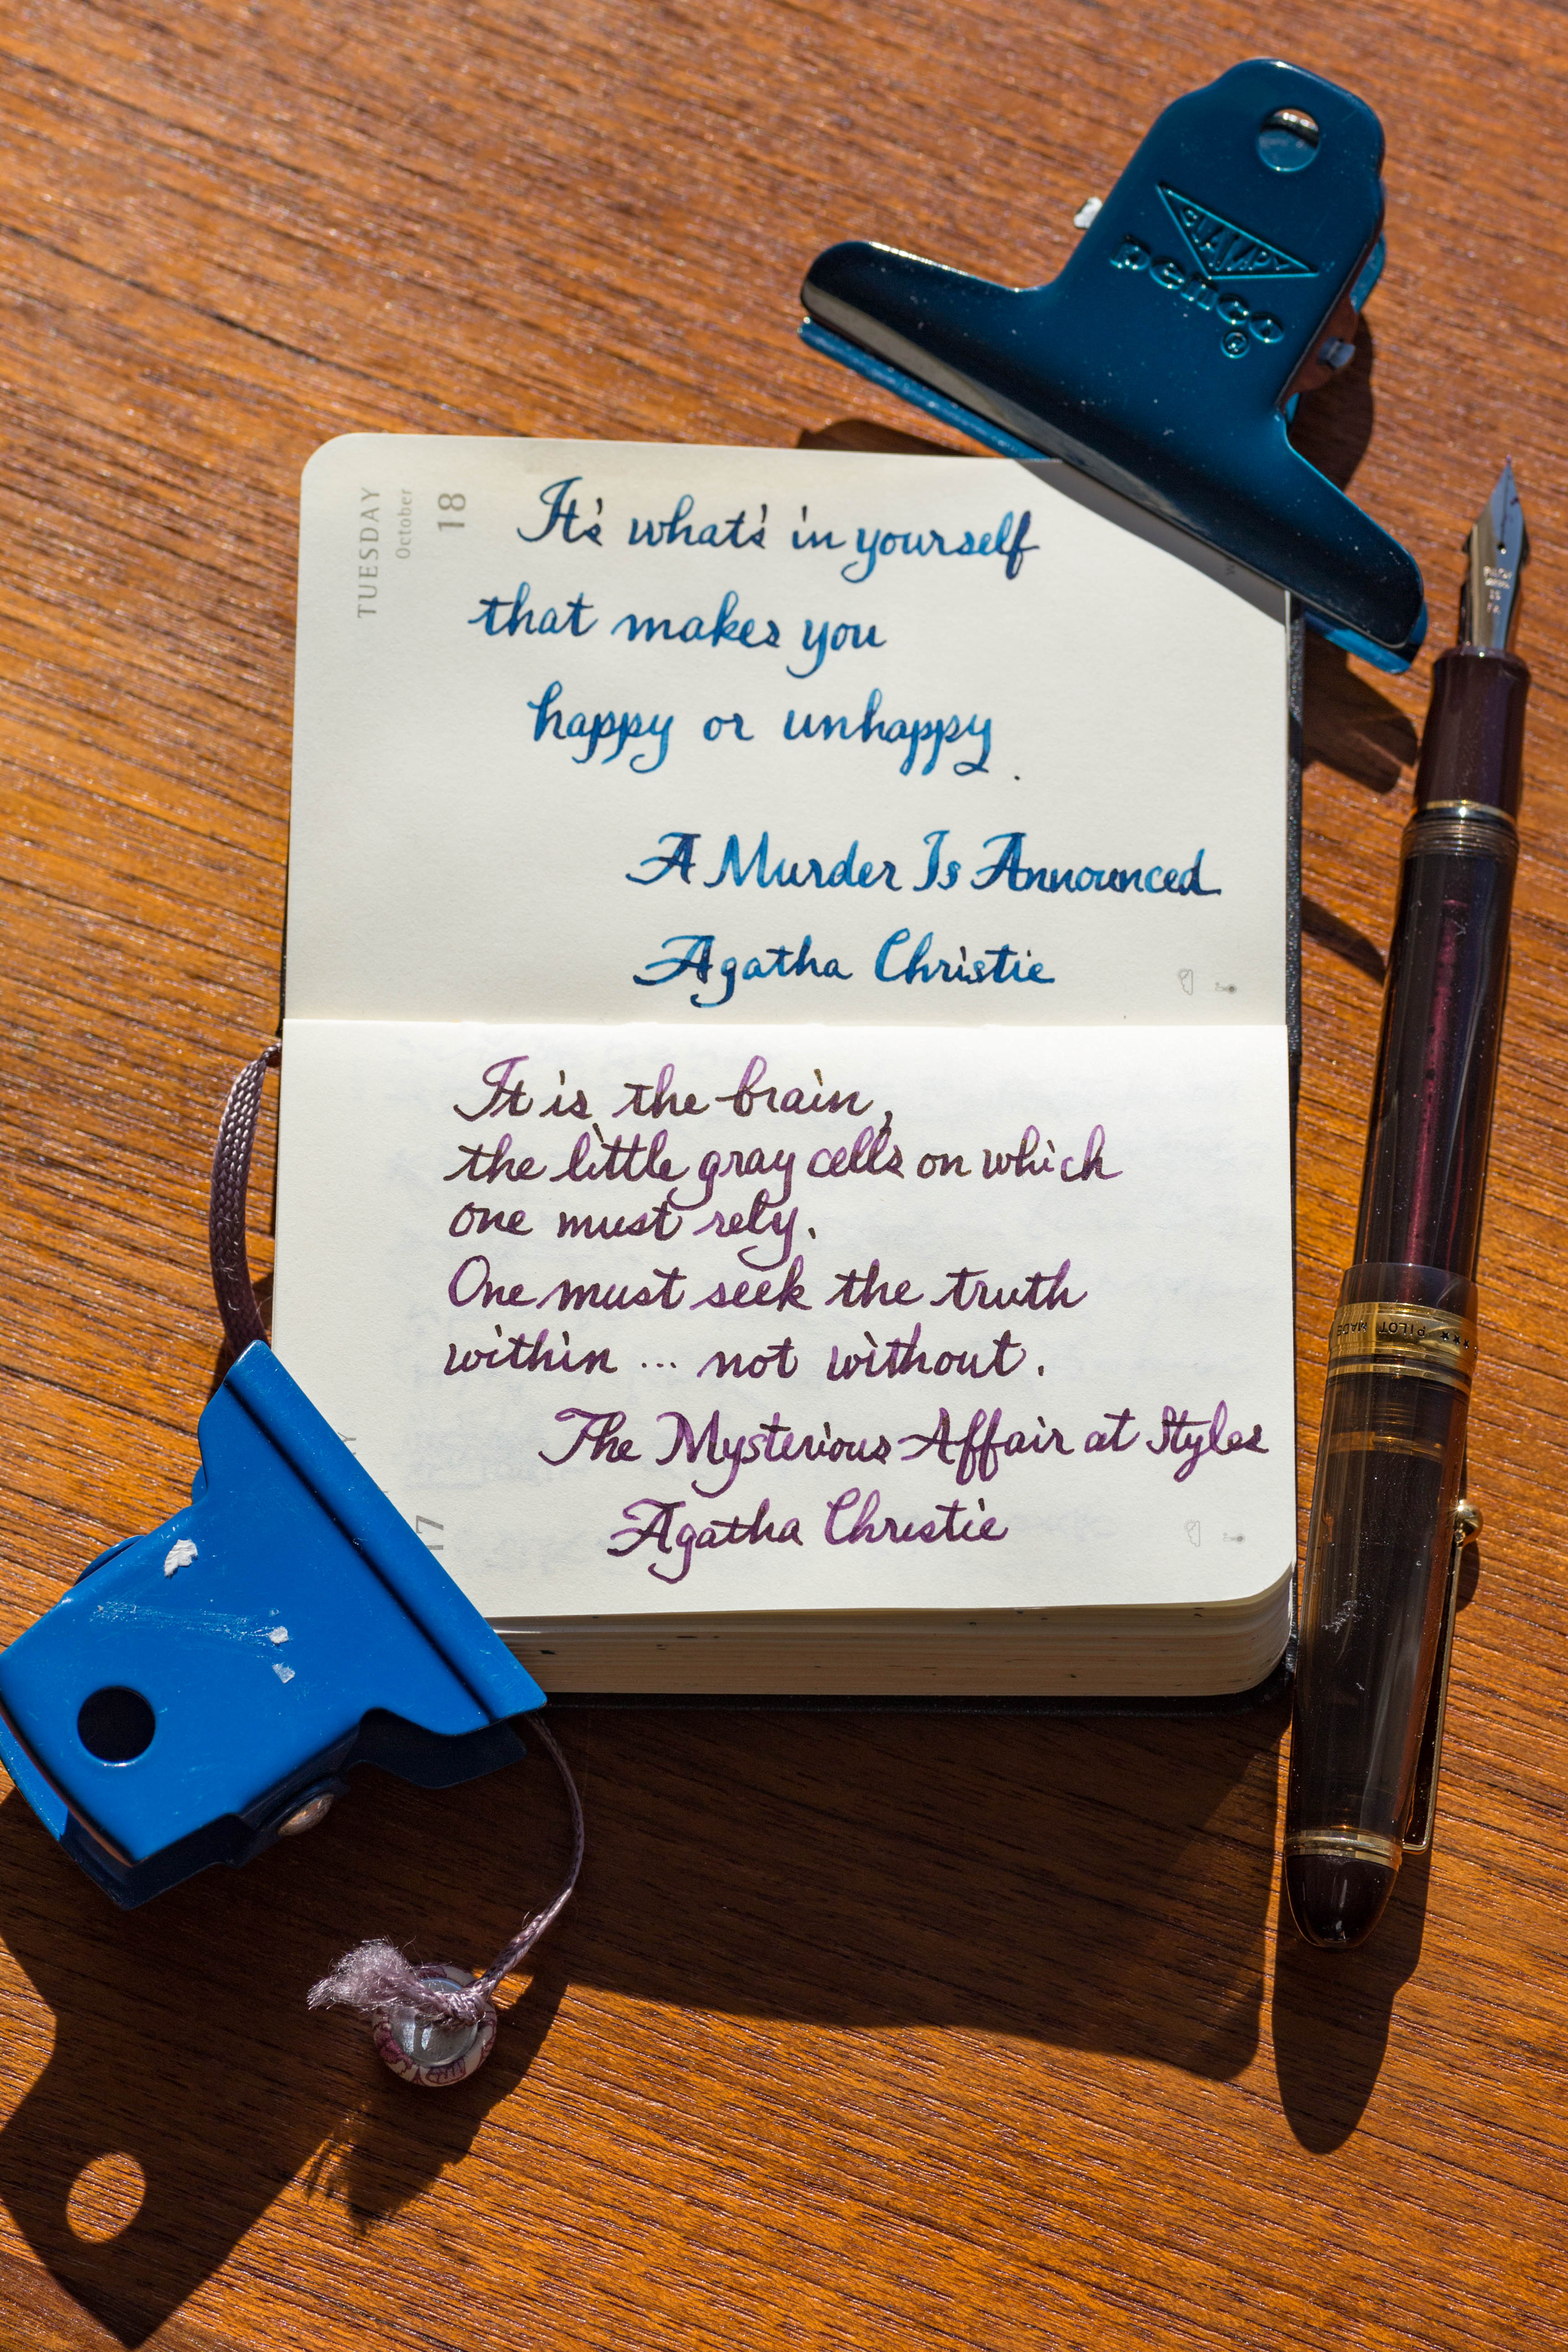 CLAMPY
penco
®
TUESDAY
October
18
It's what's in yourself
that makes you
happy or unhappy.
A Murder Is Announced
Agatha Christie
It is the brain,
the little gray cells on which
one must rely.
One must seek the truth
within ... not without.
The Mysterious Affair at Styles
Agatha Christie
17
PILOT
★★★ PILOT MADE